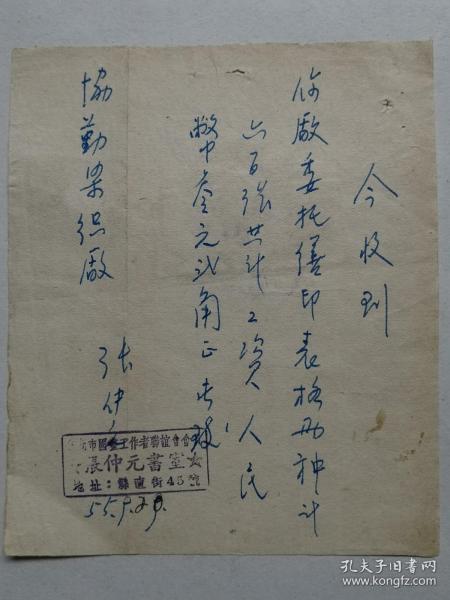 今收到
你廠委托繕印表格兩种计
六百張共计工资人民
幣叁元弍角正此致
協勤染织廠
张仲
市國畫工作者聯誼會會
張仲元書室
地址：縣直街45號
55.9.29.
孔夫子旧书网
www.kongfz.com